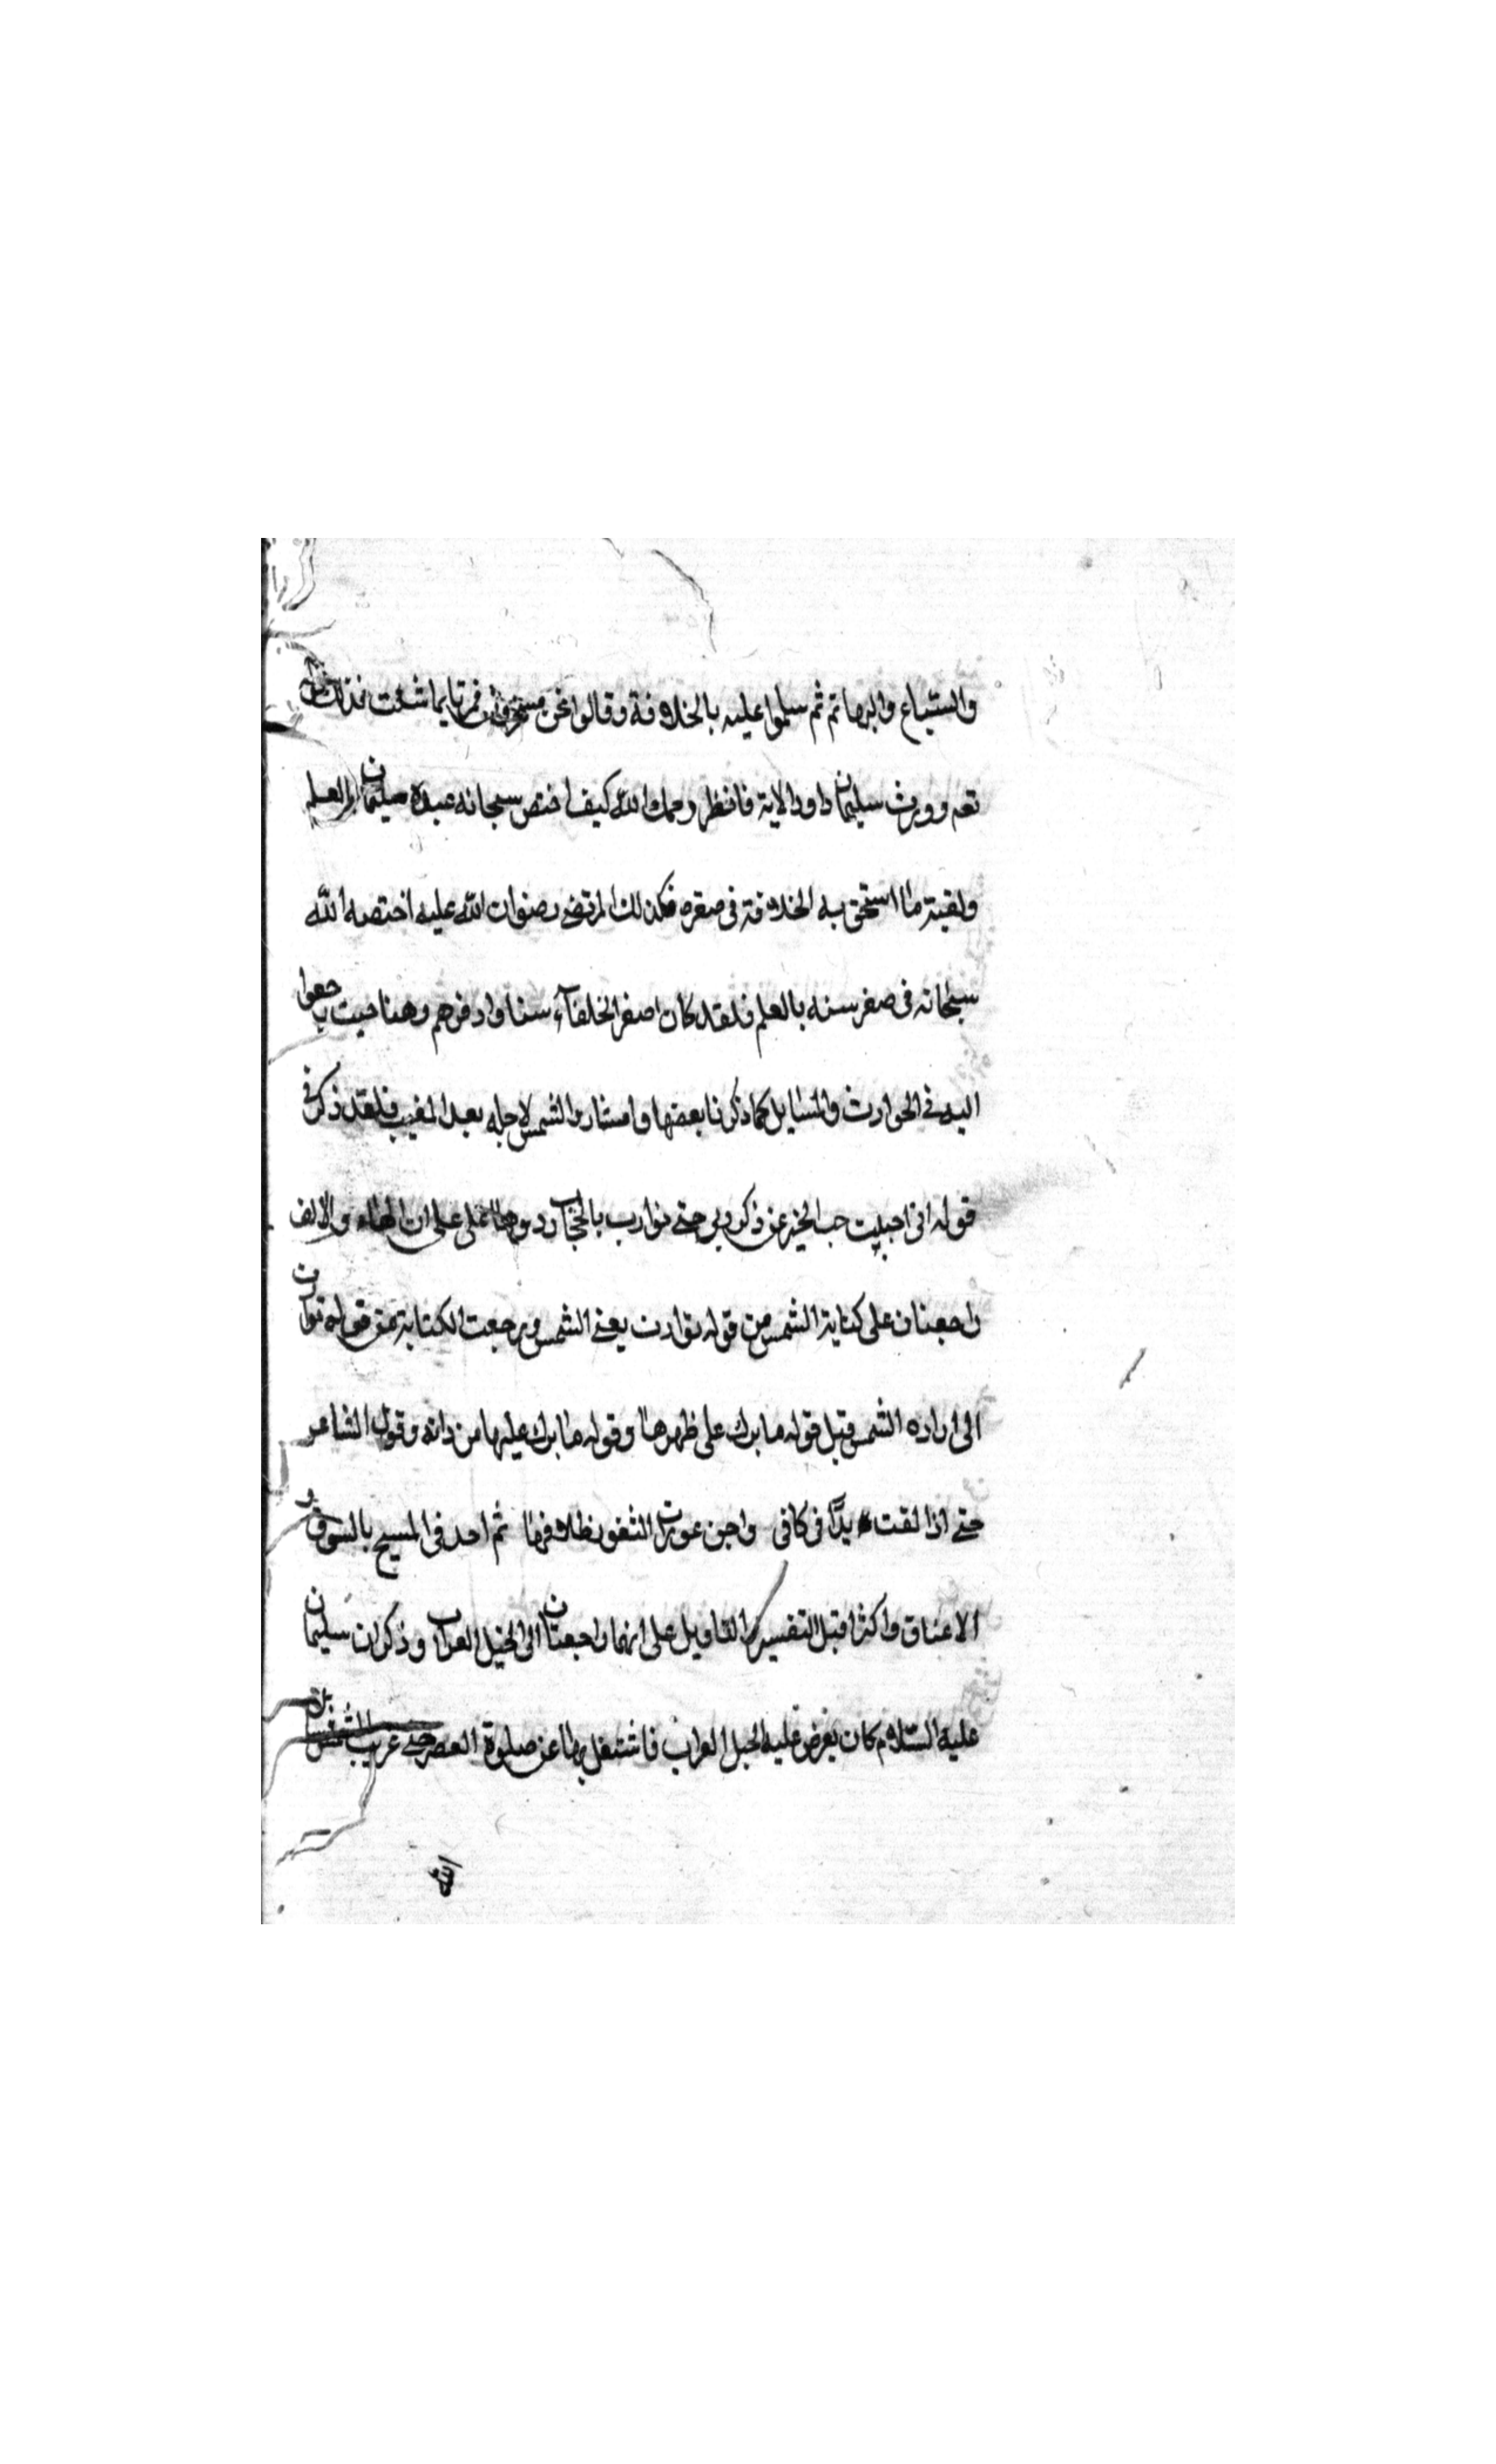 والسباع والبهائم ثم سلموا عليه بالخلافة وقالوا نحن مسخرون فمرنا بما شئت فذلك قوله
تعه وورث سليمان داود الاية فانظر رحمك الله كيف اختص سبحانه عبده سليمان بالعلم
ولقبته ما استحق به الخلافة في صغره فكذلك المرتضى رضوان الله عليه اختصه الله
سبحانه في صغر سنه بالعلم فلقد كان اصغر الخلفآء سنا واوفرهم وهنا حيث رجعوا
اليه في الحوادث والمسايل كما ذكرنا بعضها وامتنا رد الشمس لاجله بعد المغيب فلقد ذكر في
قوله اني احببت حب الخير عن ذكر ربي حتى توارت بالحجاب ردوها على على ان الهاء والالف
راجعتان على كناية الشمس من قوله توارت يعني الشمس ورجعت الكناية من قوله توارت
الى اراده الشمس قبل قوله ما ترك على ظهرها وقوله ما ترك عليها من دابة وقول الشاعر
حتى اذا لقت يدًا في كافر واجن عورات الثغور ظلامها ثم اخذ في المسح بالسوق و
الاعناق واكثر اهل التفسير والتاويل على انهما راجعتان الى الخيل العراب وذكر ان سليمان
عليه السلام كان يعرض عليه الخيل العراب فاشتغل بها عن صلوة العصر حتى غربت الشمس